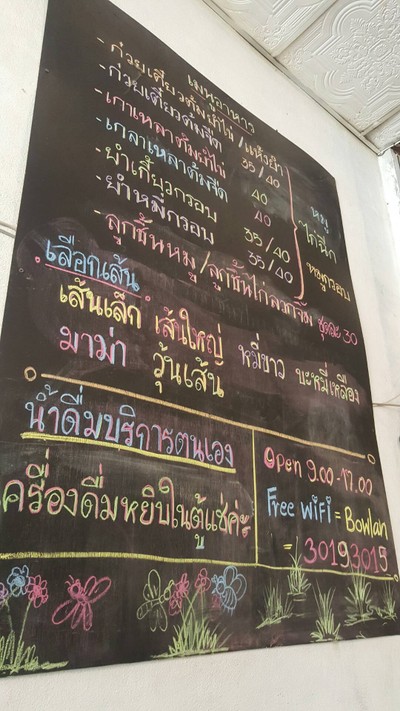 เมนูอาหาร
- ก๋วยเตี๋ยวต้มยำไข่/แห้งยำ 35/40
- ก๋วยเตี๋ยวต้มจืด
- เกาเหลาต้มยำไข่ 40
- เกาเหลาต้มจืด 40
- ยำเกี๊ยวกรอบ 35/40
- ยำหมี่กรอบ 35/40
- ลูกชิ้นหมู/ลูกชิ้นไก่ลวกจิ้ม ชุดละ 30
หมู
ไก่ฉีก
หมูกรอบ
เลือกเส้น
เส้นเล็ก เส้นใหญ่ หมี่ขาว บะหมี่เหลือง
มาม่า วุ้นเส้น
น้ำดื่มบริการตนเอง
เครื่องดื่มหยิบในตู้แช่ค่ะ
Open 9.00-17.00
Free WiFi = Bowlan
= 30193015